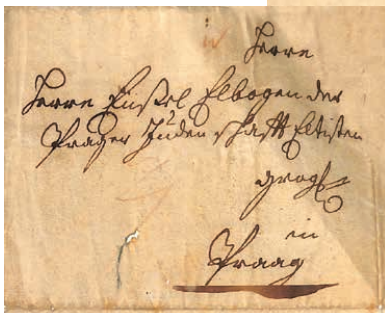 Herrn
Herrn Elbogen der
Prager Juden schafft Eltisten
in
Praag